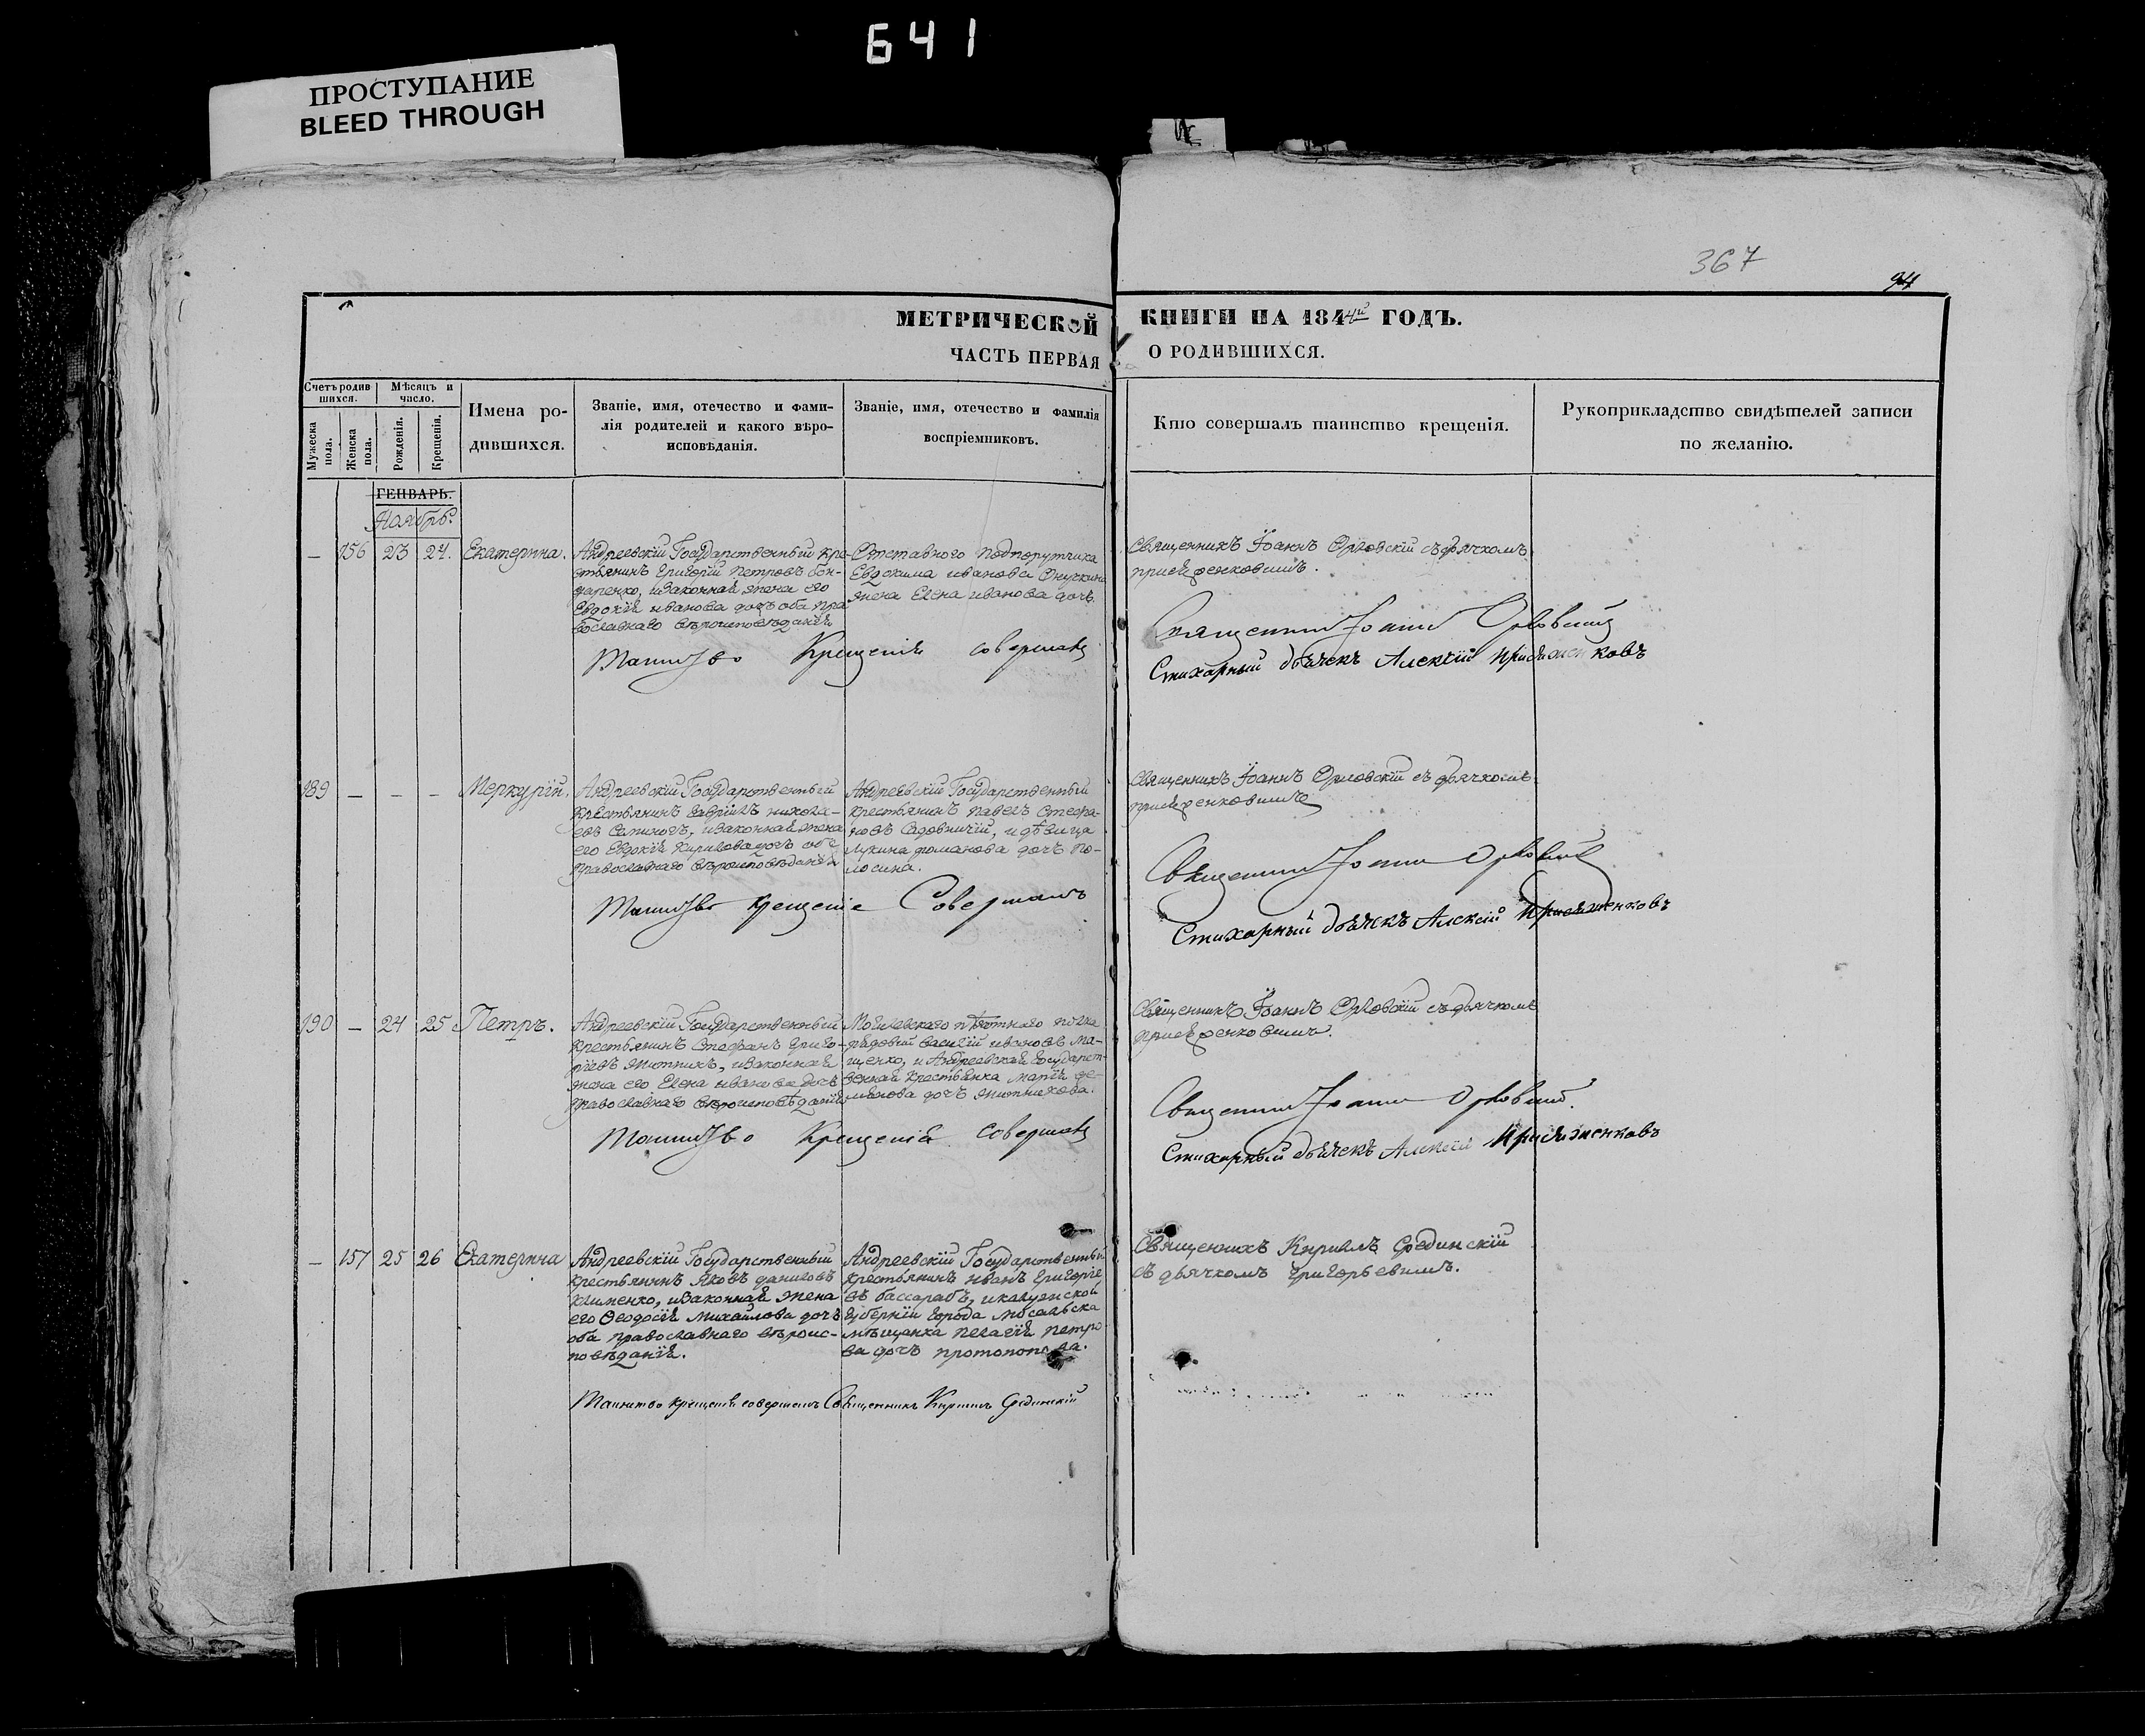 641
ПРОСТУПАНИЕ
BLEED THROUGH
367
94
МЕТРИЧЕСКОЙ КНИГИ НА 1844й ГОДЪ.
ЧАСТЬ ПЕРВАЯ О РОДИВШИХСЯ.
Счетъ родив
шихся.
Мужеска пола.
Женска пола.
Мѣсяцъ и
число.
Рожденія.
Крещенія.
Имена ро-
дившихся.
Званіе, имя, отечество и фами-
лія родителей и какого вѣро-
исповѣданія.
Званіе, имя, отечество и фамилія
воспріемниковъ.
Кто совершалъ таинство крещенія.
Рукоприкладство свидѣтелей записи
по желанію.
ГЕНВАРЬ.
Ноябрь.
— 156 23 24. Екатерина.
Андреевскій Государственный кре-
стьянинъ Григорій Петровъ Бон-
даренко, изаконная жена его
Евдокія иванова дочь оба пра
вославнаго вѣроисповѣданія
Отставного подпорутчика
Евдокима иванова
жена Елена иванова дочь.
Священникъ Іоаннъ Орловскій съ дьячкомъ
Таинство Крещенія совершалъ
Священникъ Іоаннъ Орловскій
Стихарный дьячекъ Алексій
189 — — — Меркурій.
Андреевскій Государственный
крестьянинъ Гавріилъ никола-
евъ, изаконная жена
его Евдокія Кирилова дочь оба
православнаго вѣроисповѣданія
Андреевскій Государственный
крестьянинъ павелъ Стефа-
новъ Садовничій, и дѣвица
романова дочь по-
лосина.
Священникъ Іоаннъ Орловскій съ дьячкомъ
Таинство крещенія Совершалъ
Священникъ Іоаннъ Орловскій
Стихарный дьячекъ Алексій
190 — 24 25 Петръ.
Андреевскій Государственный
крестьянинъ Стефанъ Григо-
рьевъ Житникъ, изаконная
жена его Елена иванова дочь
православнаго вѣроисповѣданія
Могилевскаго пѣхотнаго полка
рядовый василій ивановъ Ма-
щенко, и Андреевская Государст-
венная крестьянка марія де-
мьянова дочь житникова.
Священникъ Іоаннъ Орловскій съ дьячкомъ
Таинство Крещенія совершалъ
Священникъ Іоаннъ Орловскій.
Стихарный дьячекъ Алексій
— 157 25 26 Екатерина
Андреевскій Государственный
крестьянинъ Яковъ даниловъ
клименко, изаконная жена
его Ѳеодосія Михайлова дочь
оба православнаго вѣроис-
повѣданія.
Андреевскій Государственный
крестьянинъ иванъ Григорье
въ бассарабъ, икалужской
губерніи города Мосальска
мѣщанка пелагія петро
ва дочь протопопова.
Священникъ Кирилъ Срединскій
съ дьячкомъ Григорьевымъ.
Таинство крещенія совершалъ Священникъ Кирилъ Срединскій